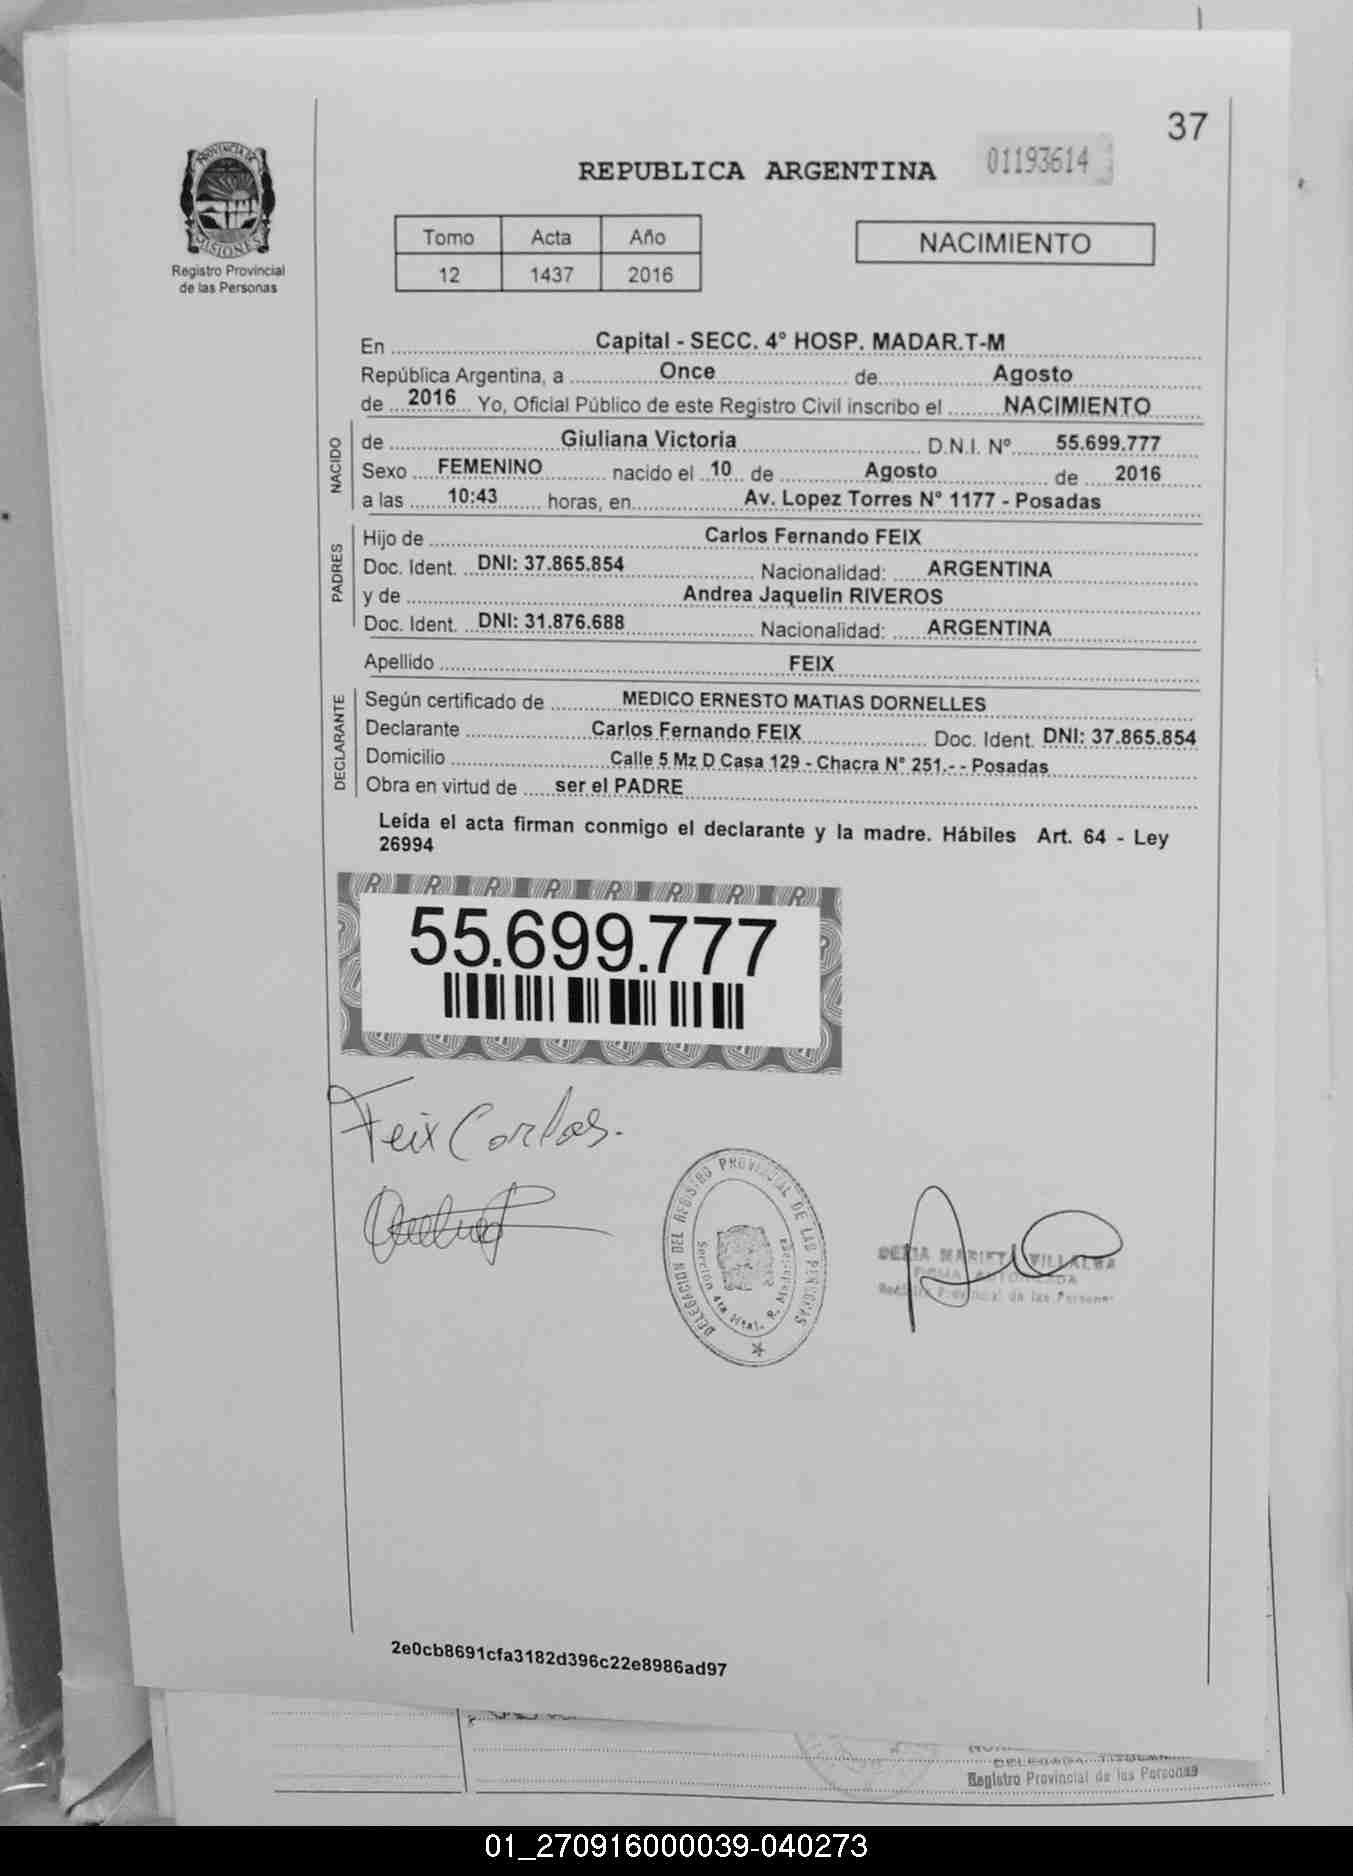 37
REPUBLICA ARGENTINA
01193614
PROVINCIA DE
MISIONES
Registro Provincial
de las Personas
Tomo Acta Año
12 1437 2016
NACIMIENTO
En Capital - SECC. 4° HOSP. MADAR.T-M
República Argentina, a Once de Agosto
de 2016 Yo, Oficial Público de este Registro Civil inscribo el NACIMIENTO
NACIDO
de Giuliana Victoria D.N.I. N° 55.699.777
Sexo FEMENINO nacido el 10 de Agosto de 2016
a las 10:43 horas, en Av. Lopez Torres N° 1177 - Posadas
PADRES
Hijo de Carlos Fernando FEIX
Doc. Ident. DNI: 37.865.854 Nacionalidad: ARGENTINA
y de Andrea Jaquelin RIVEROS
Doc. Ident. DNI: 31.876.688 Nacionalidad: ARGENTINA
Apellido FEIX
DECLARANTE
Según certificado de MEDICO ERNESTO MATIAS DORNELLES
Declarante Carlos Fernando FEIX Doc. Ident. DNI: 37.865.854
Domicilio Calle 5 Mz D Casa 129 - Chacra N° 251.- - Posadas
Obra en virtud de ser el PADRE
Leída el acta firman conmigo el declarante y la madre. Hábiles Art. 64 - Ley
26994
55.699.777
Feix Carlos.
DELEGACION DEL REGISTRO PROVINCIAL DE LAS PERSONAS
Sección 4ta Htal. R. Madariaga
MARIETA VILLALBA
FIRMA AUTORIZADA
Registro Provincial de las Personas
2e0cb8691cfa3182d396c22e8986ad97
Registro Provincial de las Personas
01_270916000039-040273